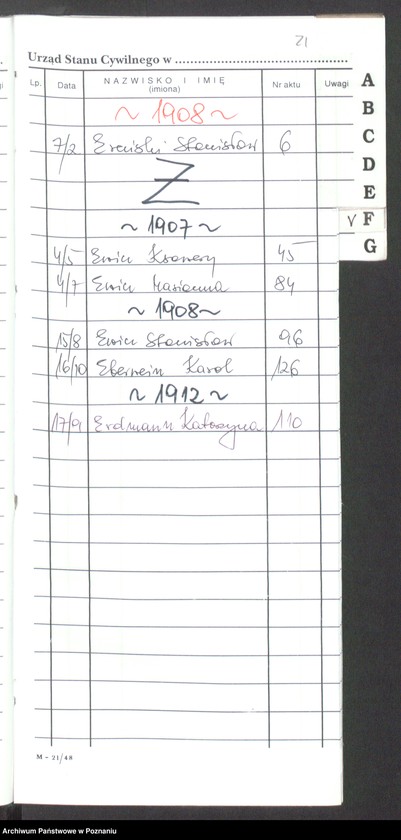 21
Urząd Stanu Cywilnego w
Lp. Data NAZWISKO I IMIĘ (imiona) Nr aktu Uwagi
~ 1908 ~
7/2 Stanisław 6
Z
~ 1907 ~
4/5 Ewicz Ksawery 45
4/7 Ewicz Marianna 84
~ 1908 ~
15/8 Ewicz Stanisław 96
16/10 Eberwein Karol 126
~ 1912 ~
17/9 Erdmann Katarzyna 110
A
B
C
D
E
V F
G
M - 21/48
Archiwum Państwowe w Poznaniu